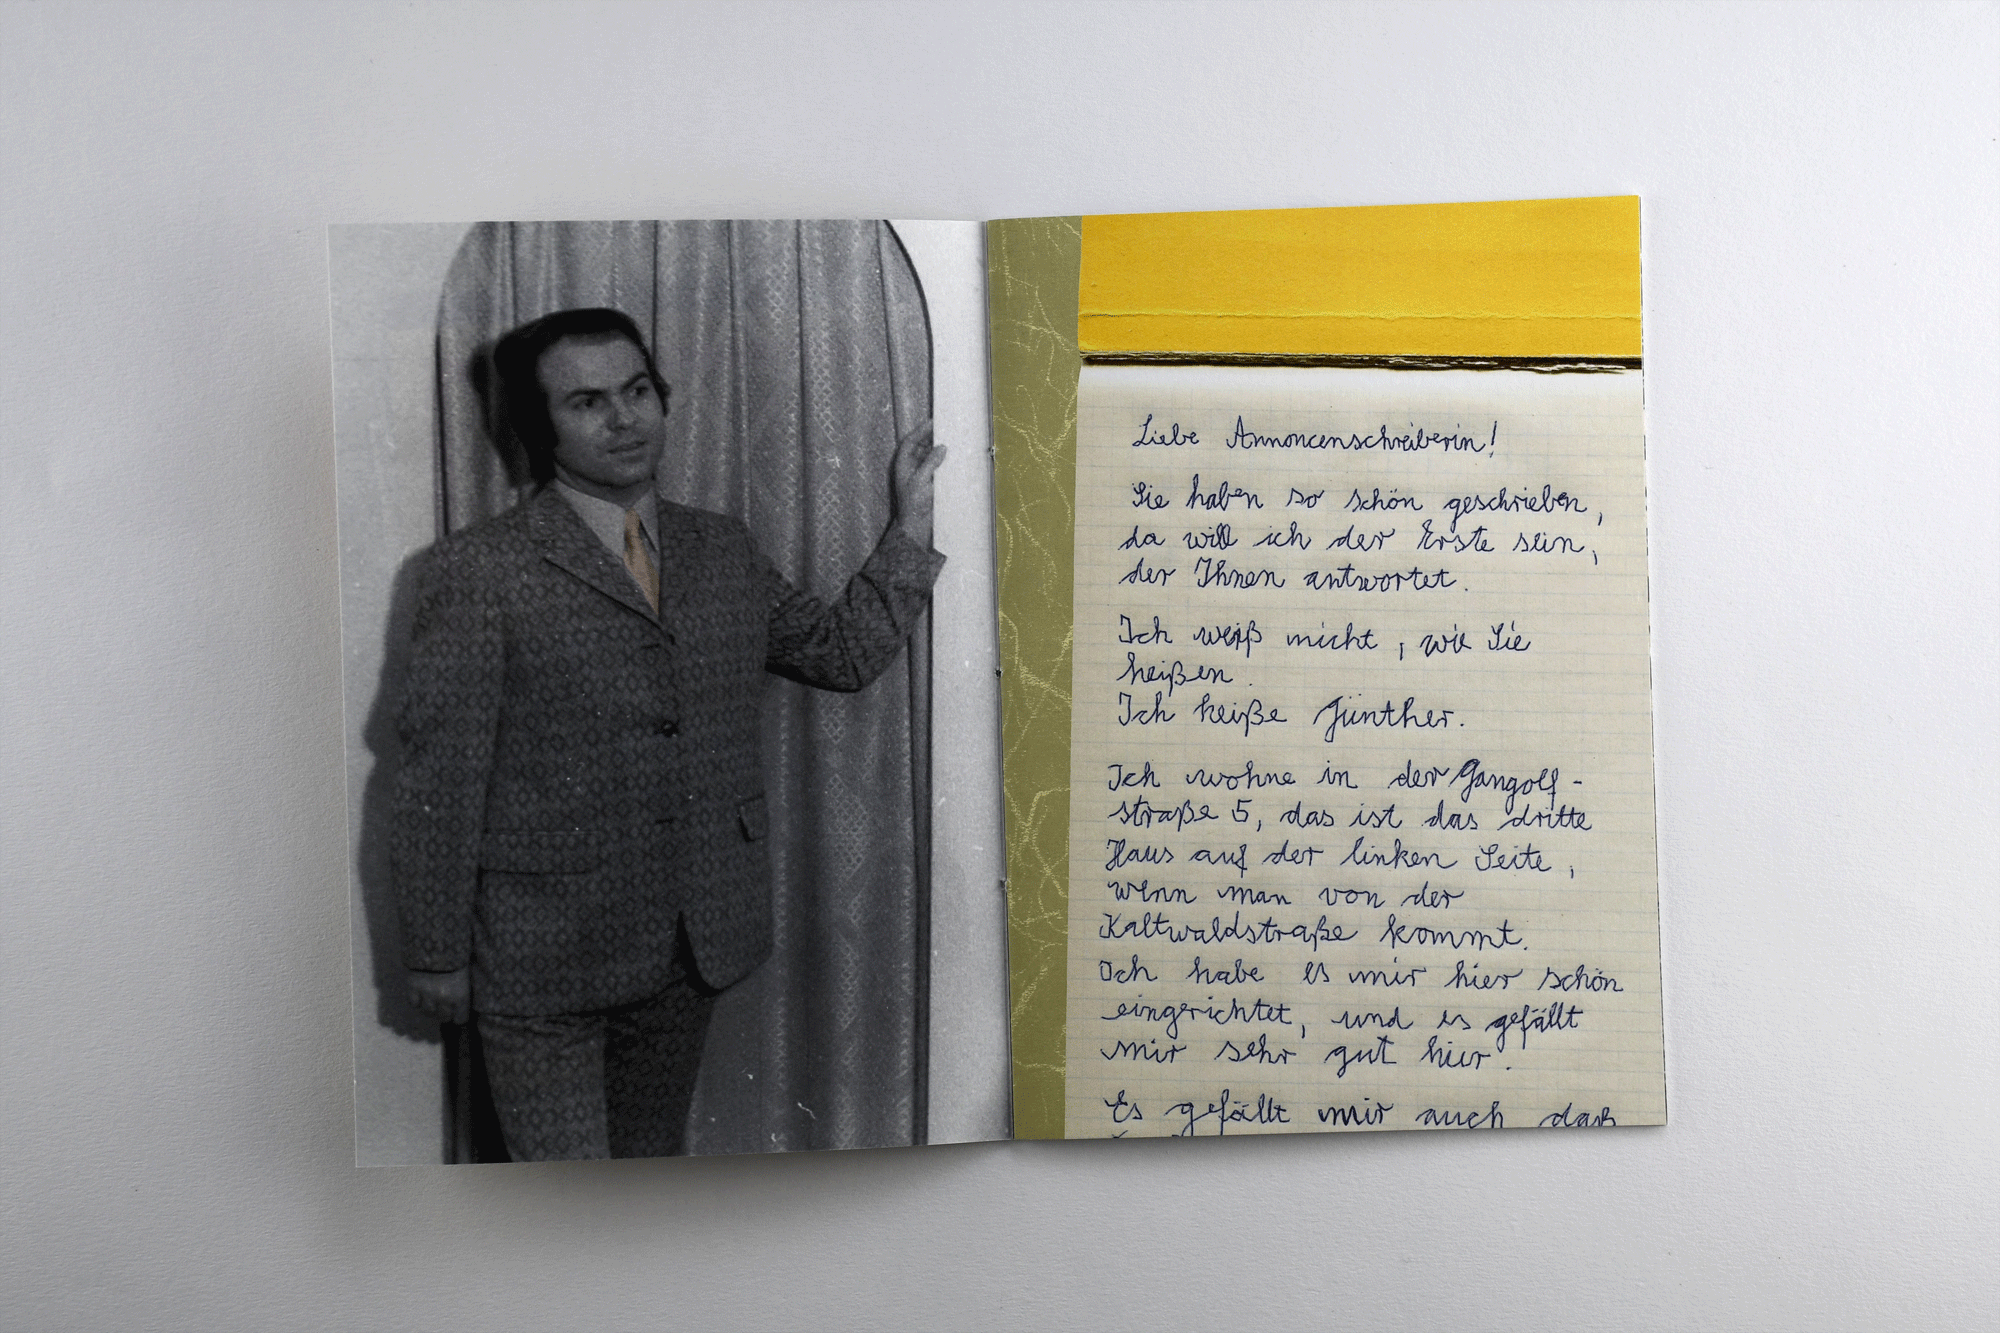 Liebe Annoncenschreiberin!
Sie haben so schön geschrieben,
da will ich der Erste sein,
der Ihnen antwortet.
Ich weiß nicht, wie Sie
heißen.
Ich heiße Günther.
Ich wohne in der Gangolf-
straße 5, das ist das dritte
Haus auf der linken Seite,
wenn man von der
Kaltwaldstraße kommt.
Ich habe es mir hier schön
eingerichtet, und es gefällt
mir sehr gut hier.
Es gefällt mir auch daß